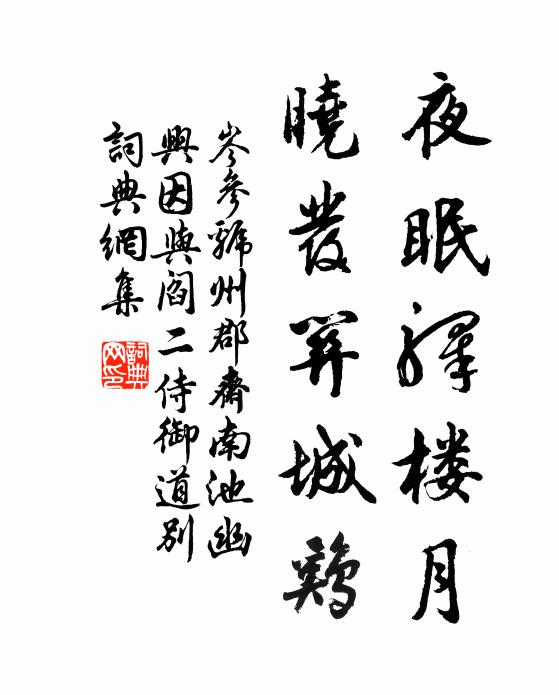 夜眠驛楼月
曉發關城鷄
岑參虢州郡齋南池幽
興因與閻二侍御道別
詞典網集
詞典
网印